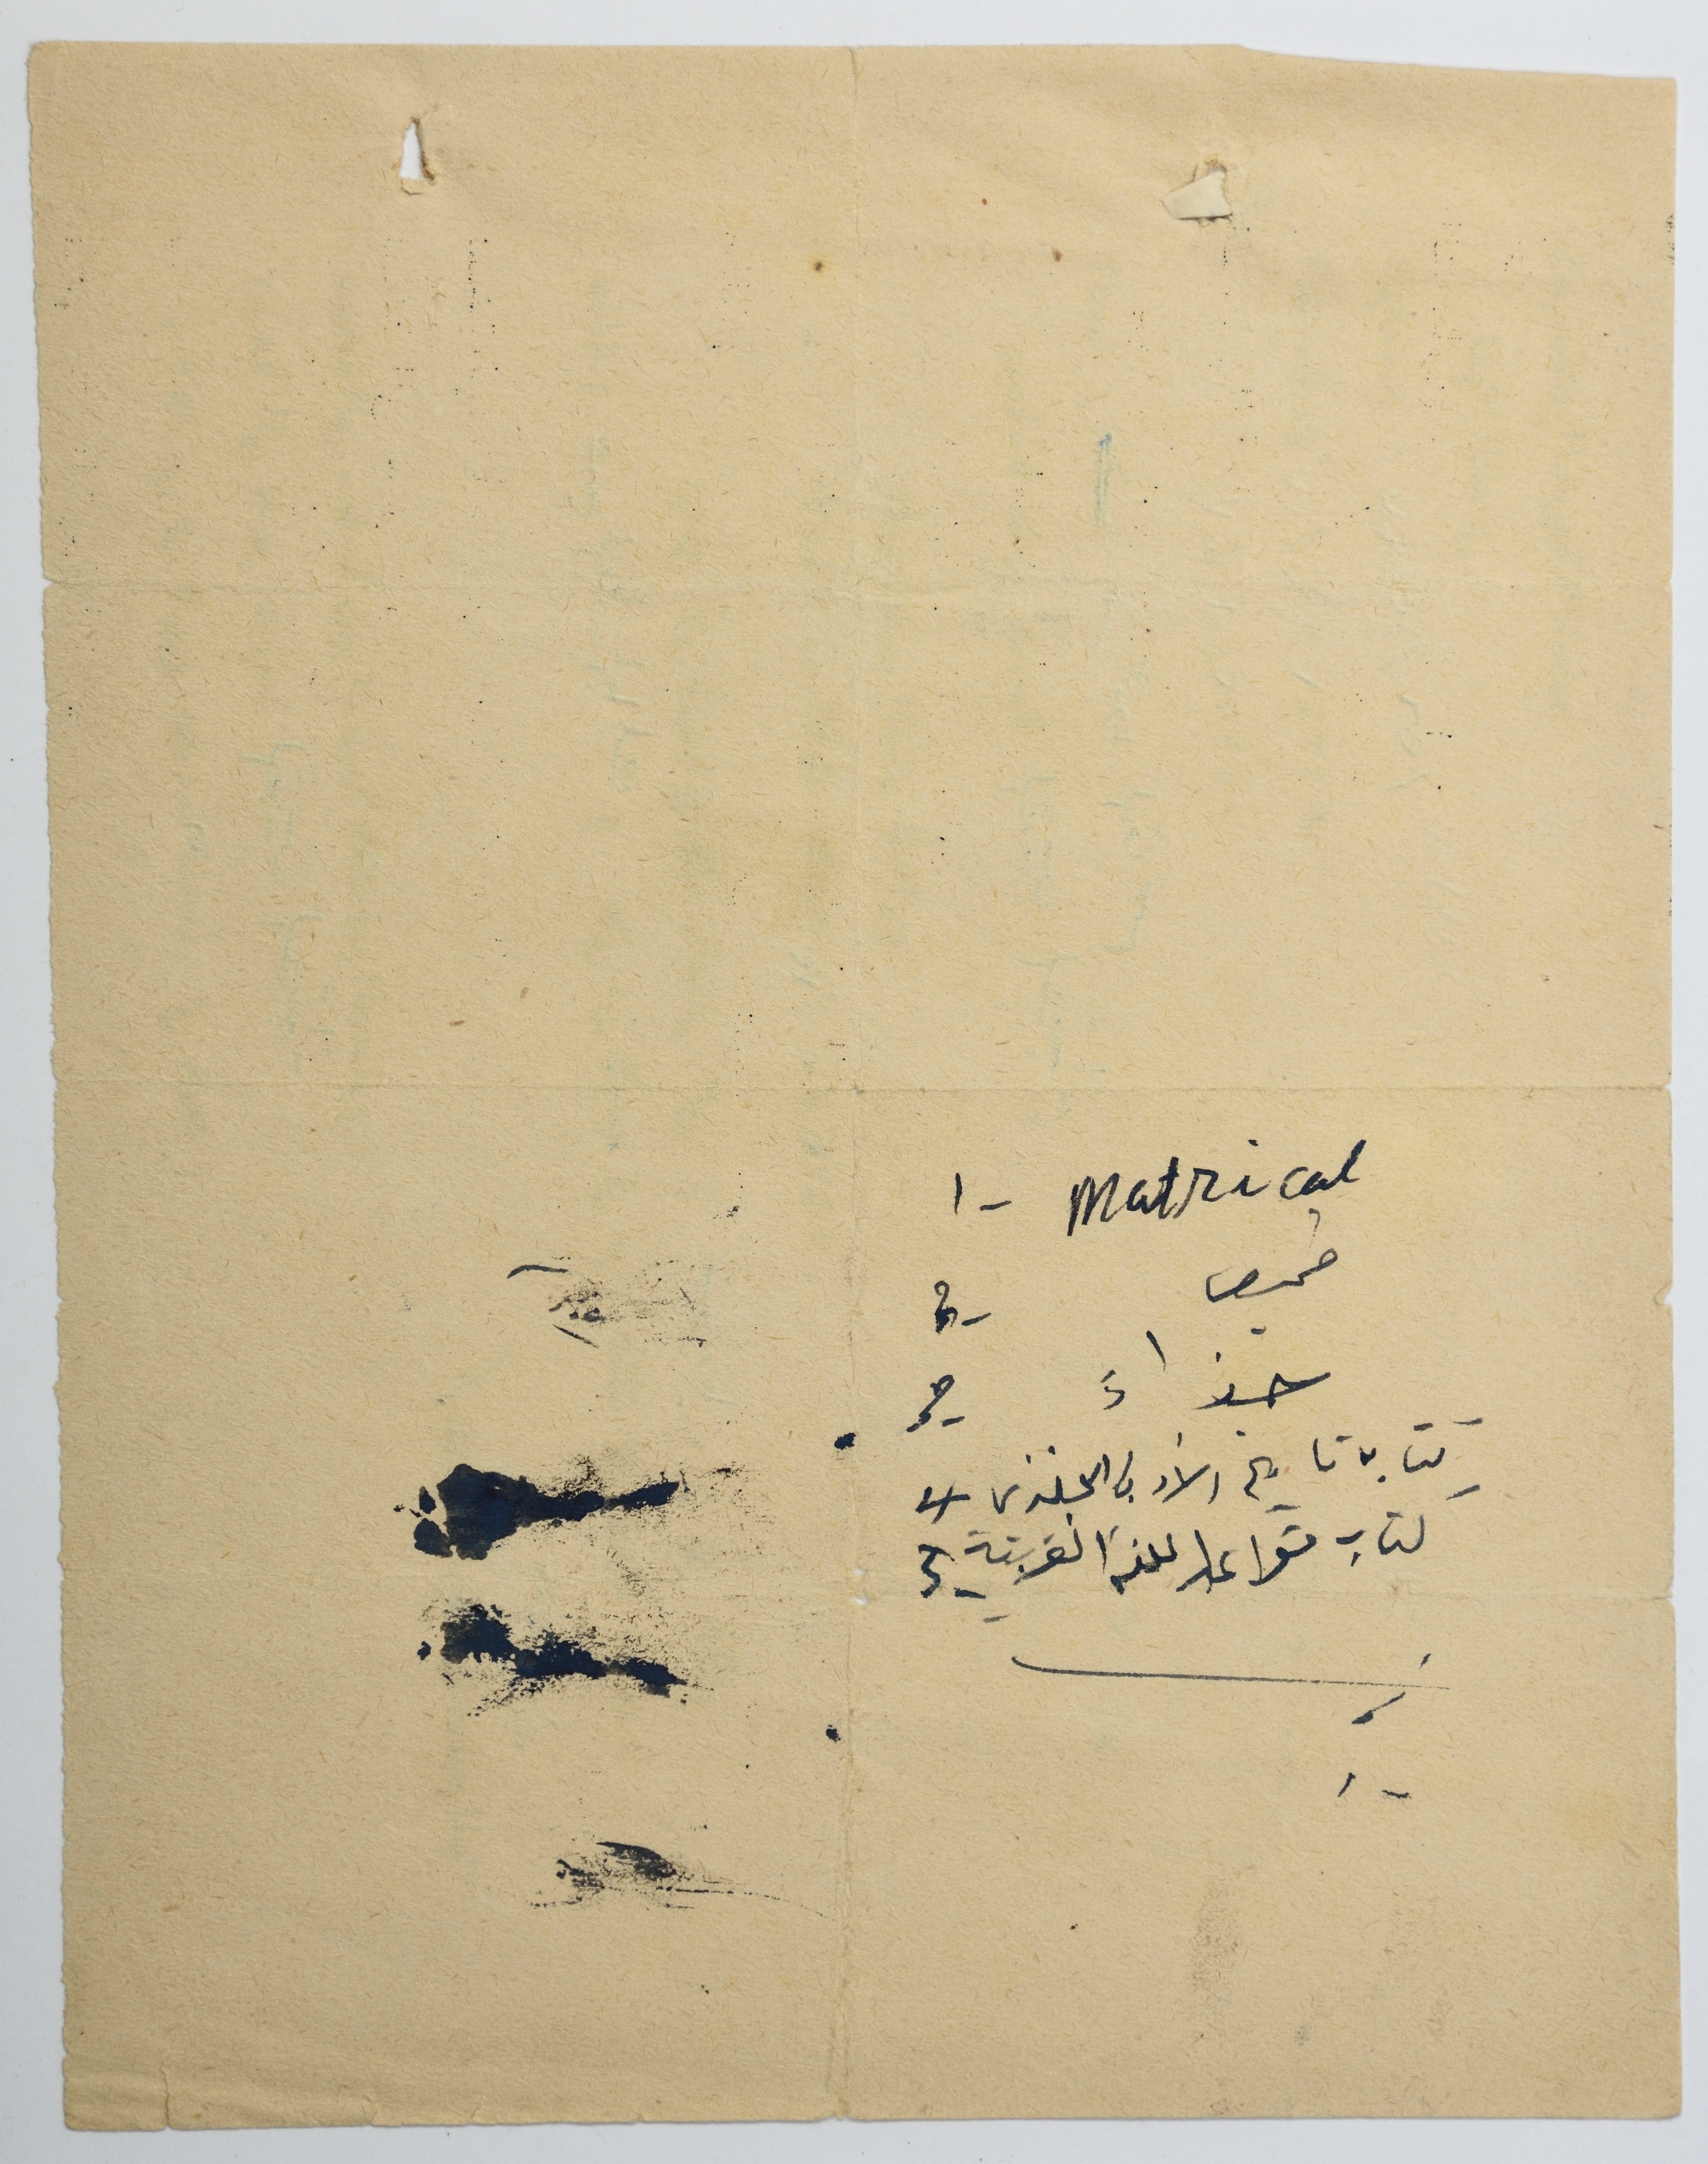 1- Matrical
2- قميص
3- حذاء
4- كتاب تاريخ الأدب الانجليزي
5- كتاب قواعد اللغة العربية
1-